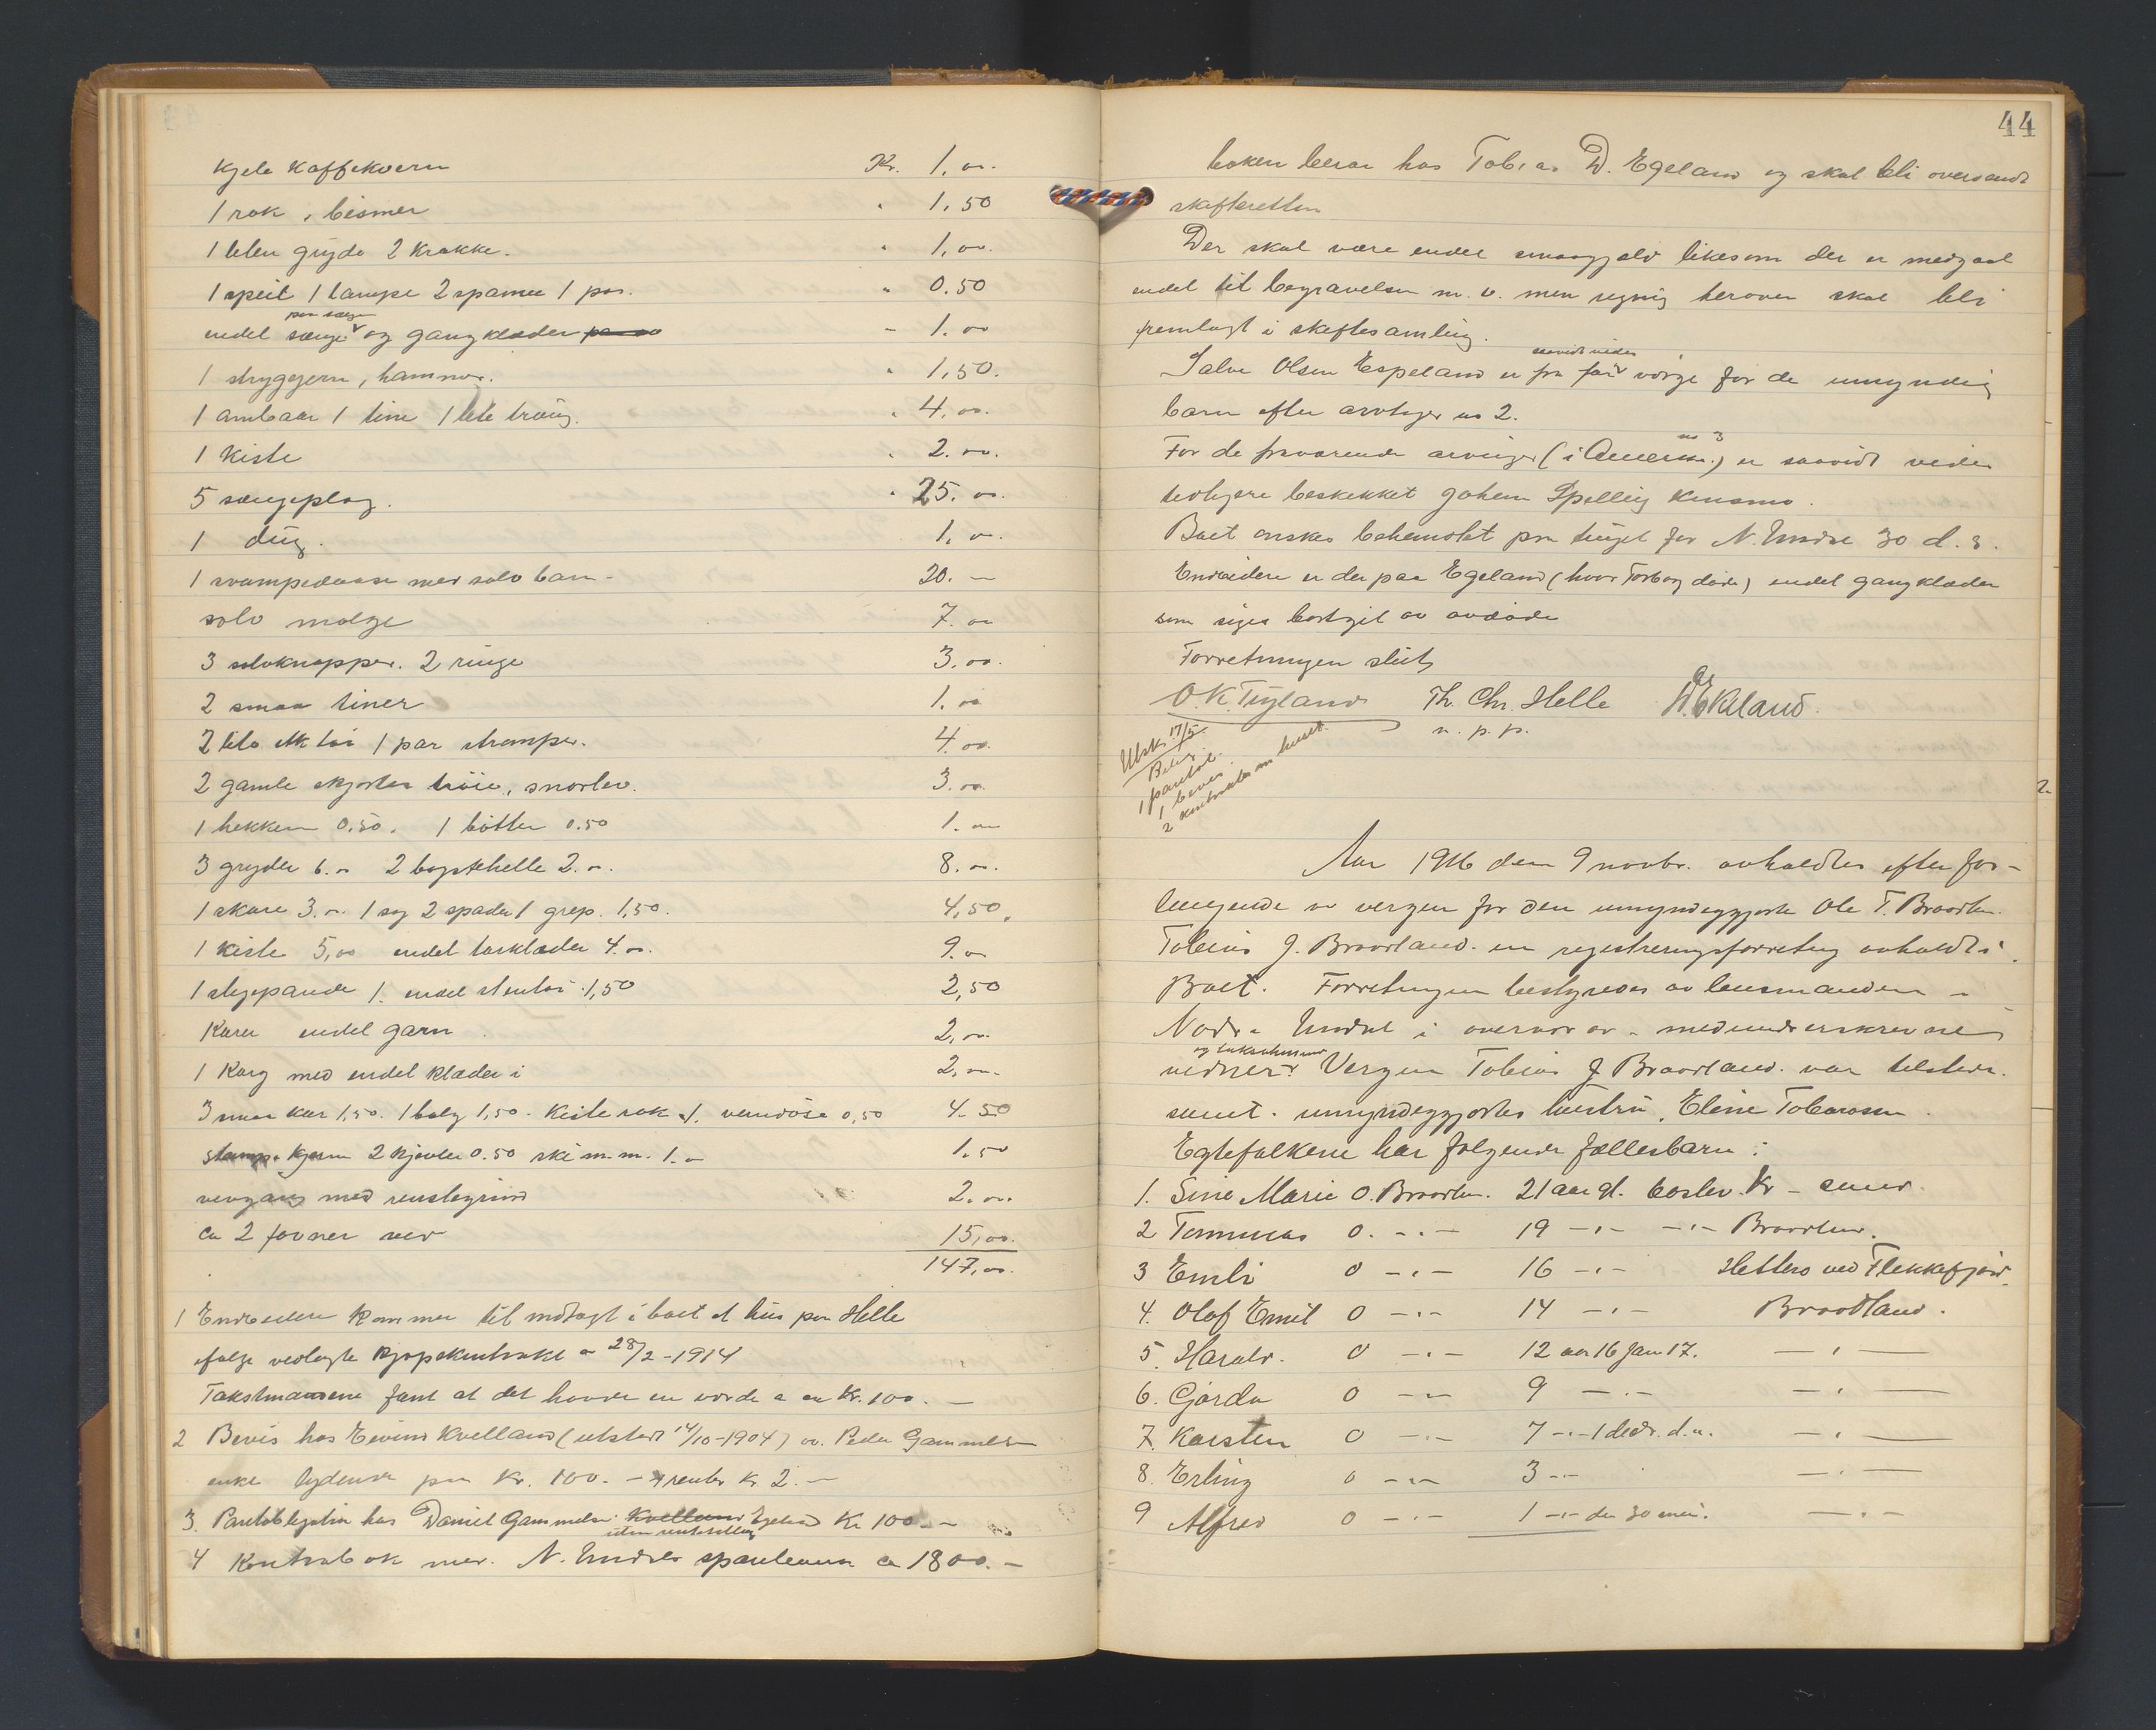 kjele kaffekvern Kr. 1.00.
1 rok, bismer " 1,50
1 liten gryde 2 krakke. " 1,00.
1 speil 1 lampe 2 spanne 1 par. " 0.50
endel senge og gangklæder - 1.00
1 strygejern, hammer. " 1,50.
1 ambaar 1 tine 1 lite traug. " 4.00.
1 Kiste " 2.00.
5 sengeplag. " 25.00.
1 dug. 1.00.
1 svampedaase med sølv barn - 20. -
sølv malge 7.00
3 sølvknapper. 2 ringe 3.00.
2 smaa tiner 1.00
2 lito stk tøi 1 par strømper. 4.00.
2 gamle skjorter trøie, snorliv. 3.00.
1 hekken 0.50. 1 bøtte 0.50 1.00
3 gryder 6.00 2 bogstehelle 2.00. 8.00.
1 skave 3.00. 1 sag 2 spader 1 grep. 1,50. 4,50.
1 kiste 5,00 endel 4.00. 9.00
1 stegepande 1. endel stentøi 1,50 2,50
Karer endel garn 2,00.
1 Korg med endel klæder i 2,00.
3 smaa kar 1,50. 1 balg 1,50. Kiste rok 1. vandøse 0,50 4.50
stamp. Kjern 2 kjevler 0.50 ski m.m. 1.00 1.50
vevgang med 2.00.
ca 2 favner ved 15,00.
147,00.
1 Endvidere kommer til indtægt i boet et hus paa Helle
ifølge vedlagte kjøpekontrakt a 28/2-1914
Takstmændene fant at det havde en værdi a ca Kr. 100. -
2 Bevis hos Eivind Kvelland (utstedt 14/10-1904) av Peder Gammelsen
enke lydende paa Kr. 100. - + renter Kr. 2. -
3. Pantobligation hos Daniel Gammelsen Kvelland Egeland Kr 100. -
uten rentestilling
4 Kontrabok med N. Undals sparebank ca 1800. -
44
boken beror hos Tobias D. Egeland og skal bli oversendt
skifteretten
Der skal være endel smaagjæld likesom der er medgaat
endel til begravelsen m.v. men regning herover skal bli
fremlagt i skiftesamling.
saavidt vides
Salve Olsen Espeland er fra før værge for de umyndige
barn efter arvtager no 2.
no 3
For de fraværende arvinger (i Amerika) er saavidt vides
tidligere beskikket Johan Spelling Kvinesmo.
Boet ønskes behandlet paa tinget for N. Undal 30 d.s.
Endvidere er der paa Egeland (hvor Torborg døde) endel gangklæder
som siges bortgit av avdøde
Forretningen slut
O. K. Tryland Th. Chr. Helle D. Ekeland.
m. p. p.
Utsk. 17/5
Bilag
1 pantobl.
1 bevis
2 kontrakter m huset.
Aar 1916 den 9 novbr. avholdtes efter for-
langende av vergen for den umyndiggjorte Ole T. Braadlan.
Tobias J. Braadland. en registreringsforretning avholdt i
Boet. Forretningen bestyredes av lensmanden i
Nordre Undal i overvær av medunderskrevne
og takstmænd
vidner. Vergen Tobias J Braadland. var tilstede.
samt umyndiggjortes hustru, Eline Tobiassen.
Egtefolkene har følgende fællesbarn:
1. Sine Marie O. Braadlan. 21 aar gl. bosted. Kr-sand.
2 Tommeas O. -"- 19 -"- -"- Braadland.
3 Emli O -"- 16 -"- Hitterø ved Flekkefjord.
4. Olaf Emil O -"- 14 -"- Braadland.
5. Harald. O -"- 12 aar 16 Jan 17. -"-
6. Gjerda O -"- 9 -"- -"-
7. Karsten O -"- 7 -"- 1 decbr. d.a. -"-
8. Erling O -"- 3 -"- -"-
9 Alfred O -"- 1 -"- den 30 mai. -"-